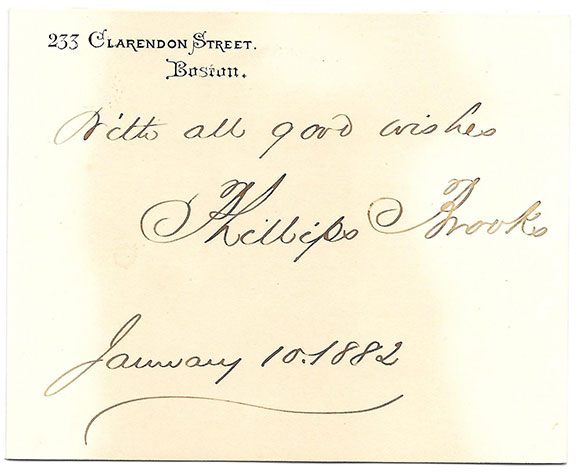 233 Clarendon Street.
Boston.
With all good wishes
Phillips Brooks
January 10. 1882